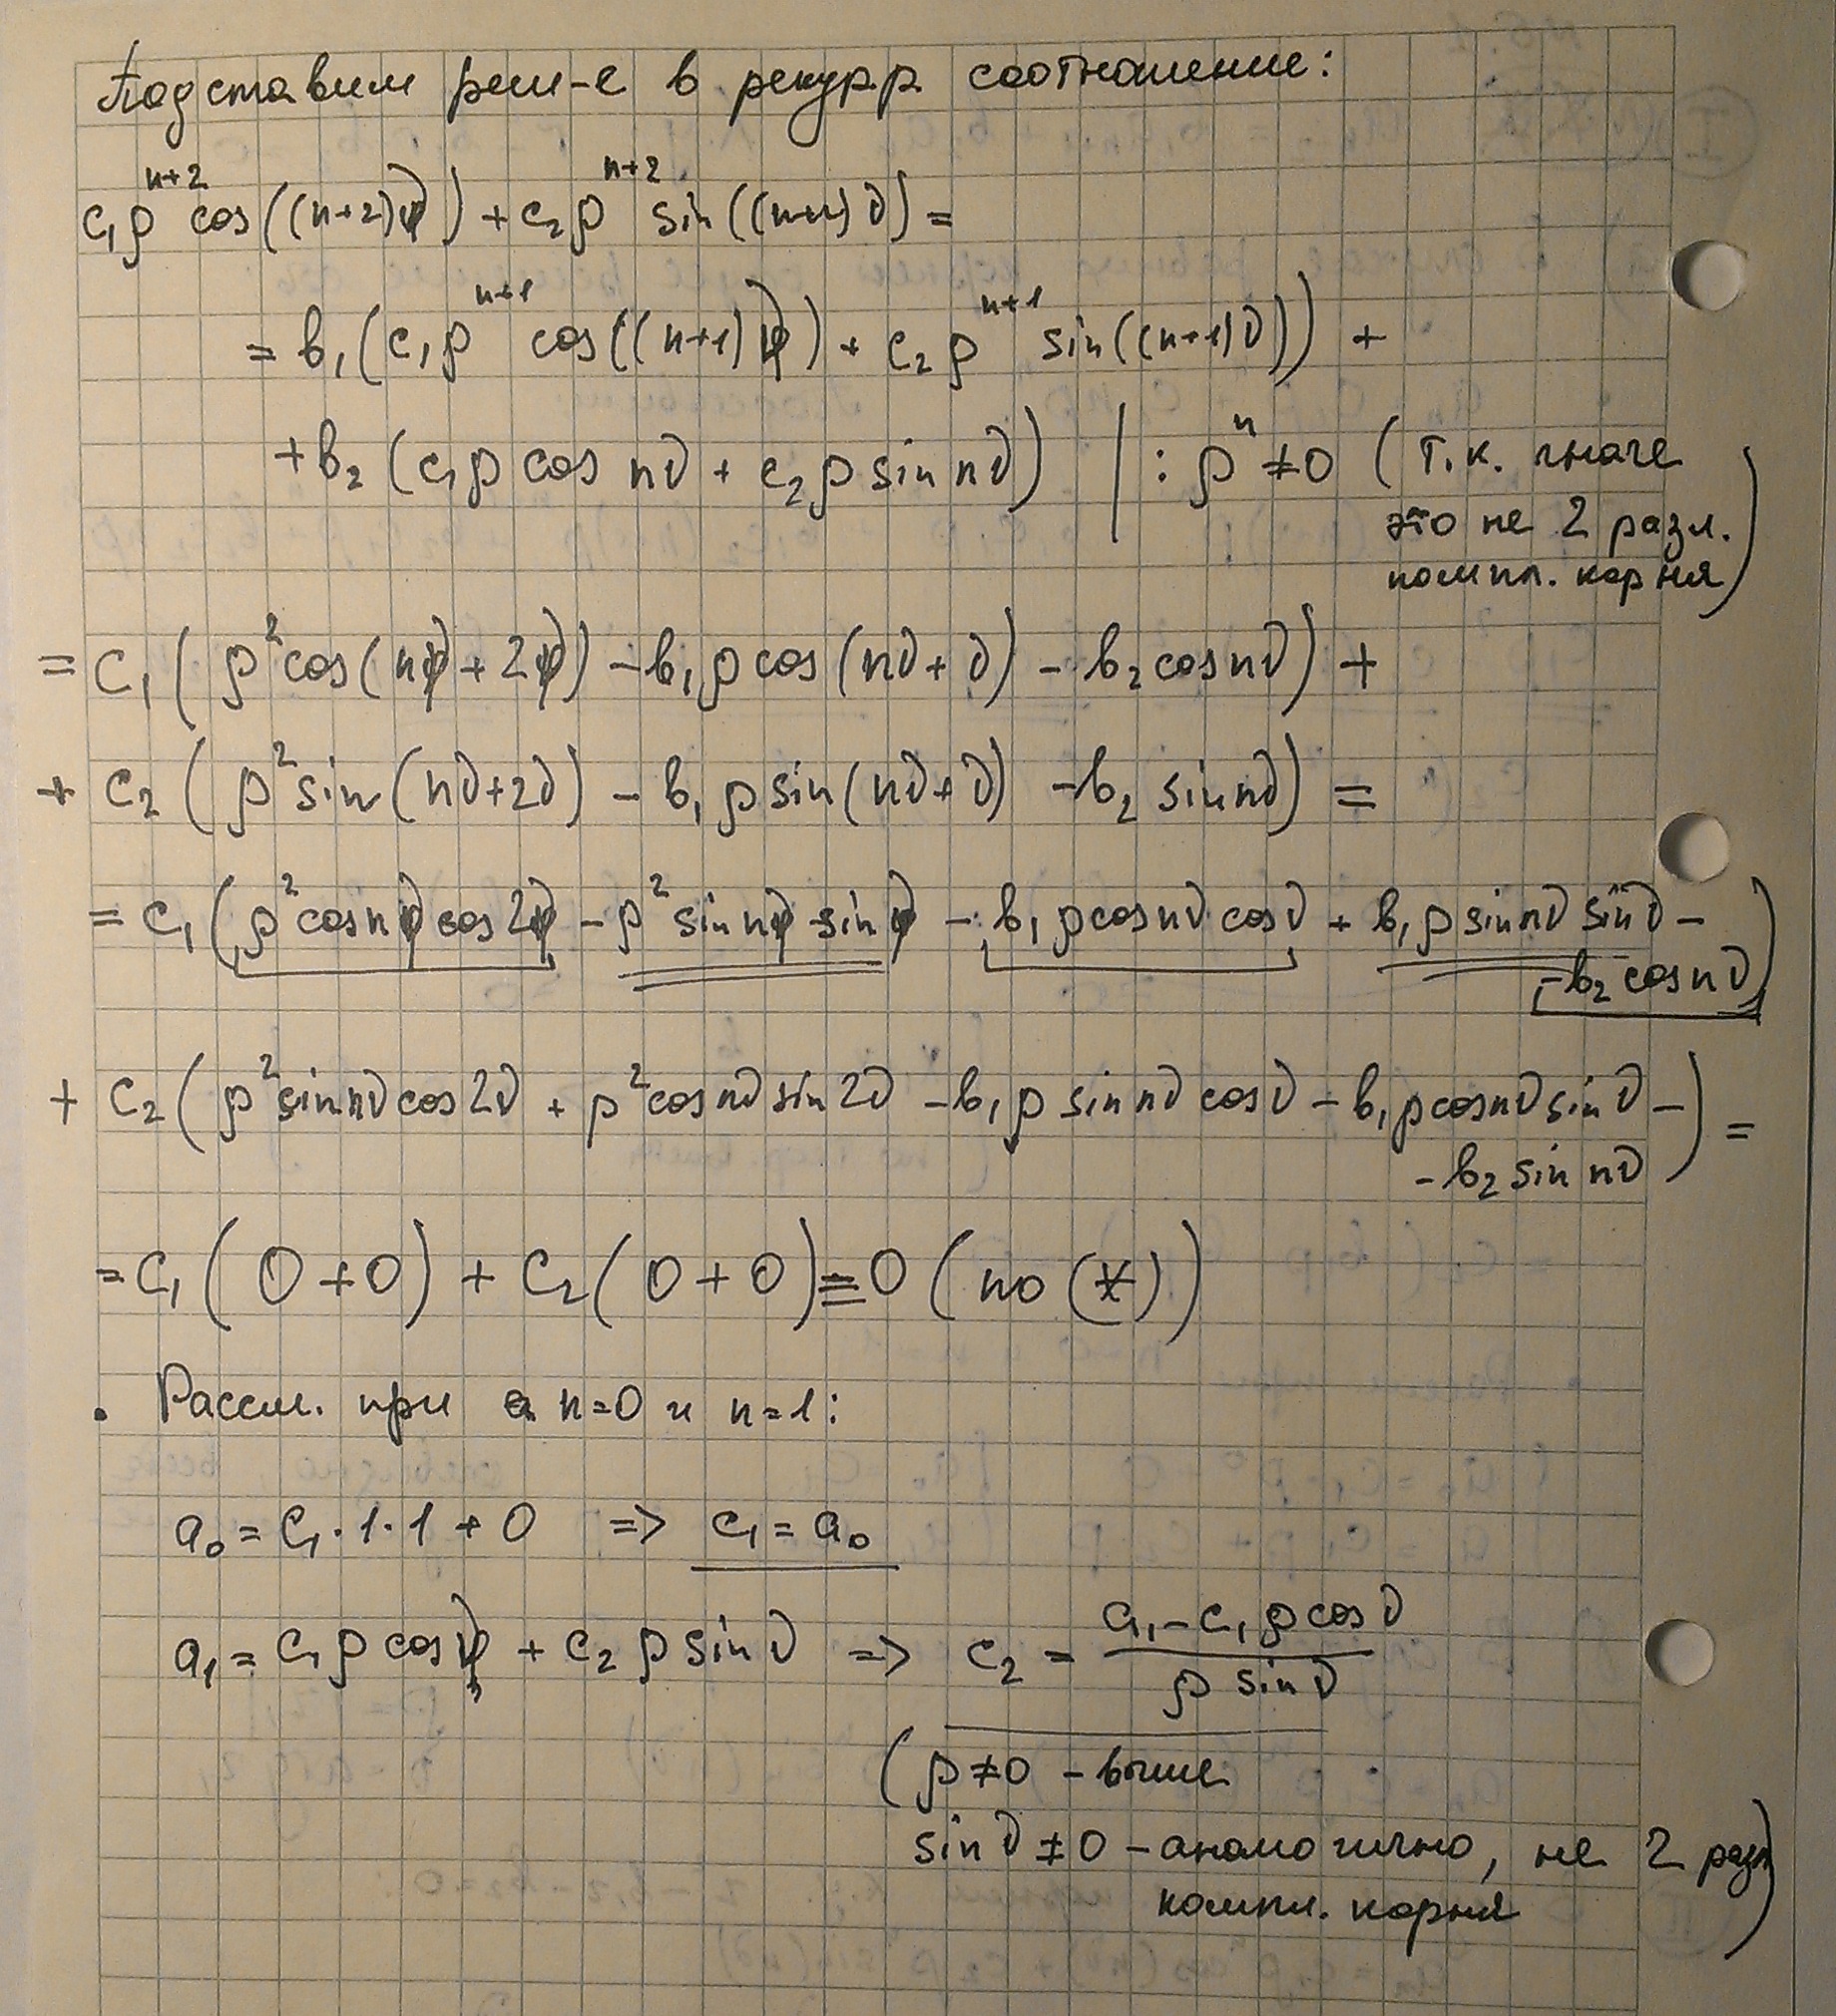 Подставим реш-е в рекурр соотношение:
c₁ρⁿ⁺² cos((n+2)ϑ) + c₂ρⁿ⁺² sin((n+2)ϑ) =
= b₁(c₁ρⁿ⁺¹ cos((n+1)ϑ) + c₂ρⁿ⁺¹ sin((n+1)ϑ)) +
+ b₂(c₁ρ cos nϑ + c₂ρ sin nϑ) | : ρⁿ ≠ 0 (т.к. иначе
это не 2 разл.
компл. корня)
= c₁(ρ² cos(nϑ + 2ϑ) - b₁ρ cos(nϑ + ϑ) - b₂ cos nϑ) +
+ c₂(ρ² sin(nϑ + 2ϑ) - b₁ρ sin(nϑ + ϑ) - b₂ sin nϑ) =
= c₁(ρ² cos nϑ cos 2ϑ - ρ² sin nϑ sin ϑ - b₁ρ cos nϑ cos ϑ + b₁ρ sin nϑ sin ϑ -
- b₂ cos nϑ)
+ c₂(ρ² sin nϑ cos 2ϑ + ρ² cos nϑ sin 2ϑ - b₁ρ sin nϑ cos ϑ - b₁ρ cos nϑ sin ϑ -
- b₂ sin nϑ) =
= c₁(0 + 0) + c₂(0 + 0) = 0 (по (*))
• Рассм. при n=0 и n=1:
a₀ = c₁·1·1 + 0 => c₁ = a₀
a₁ = c₁ρ cos ϑ + c₂ρ sin ϑ => c₂ = (a₁ - c₁ρ cos ϑ)/(ρ sin ϑ)
(ρ ≠ 0 - выше
sin ϑ ≠ 0 - аналогично, не 2 разл
компл. корня)